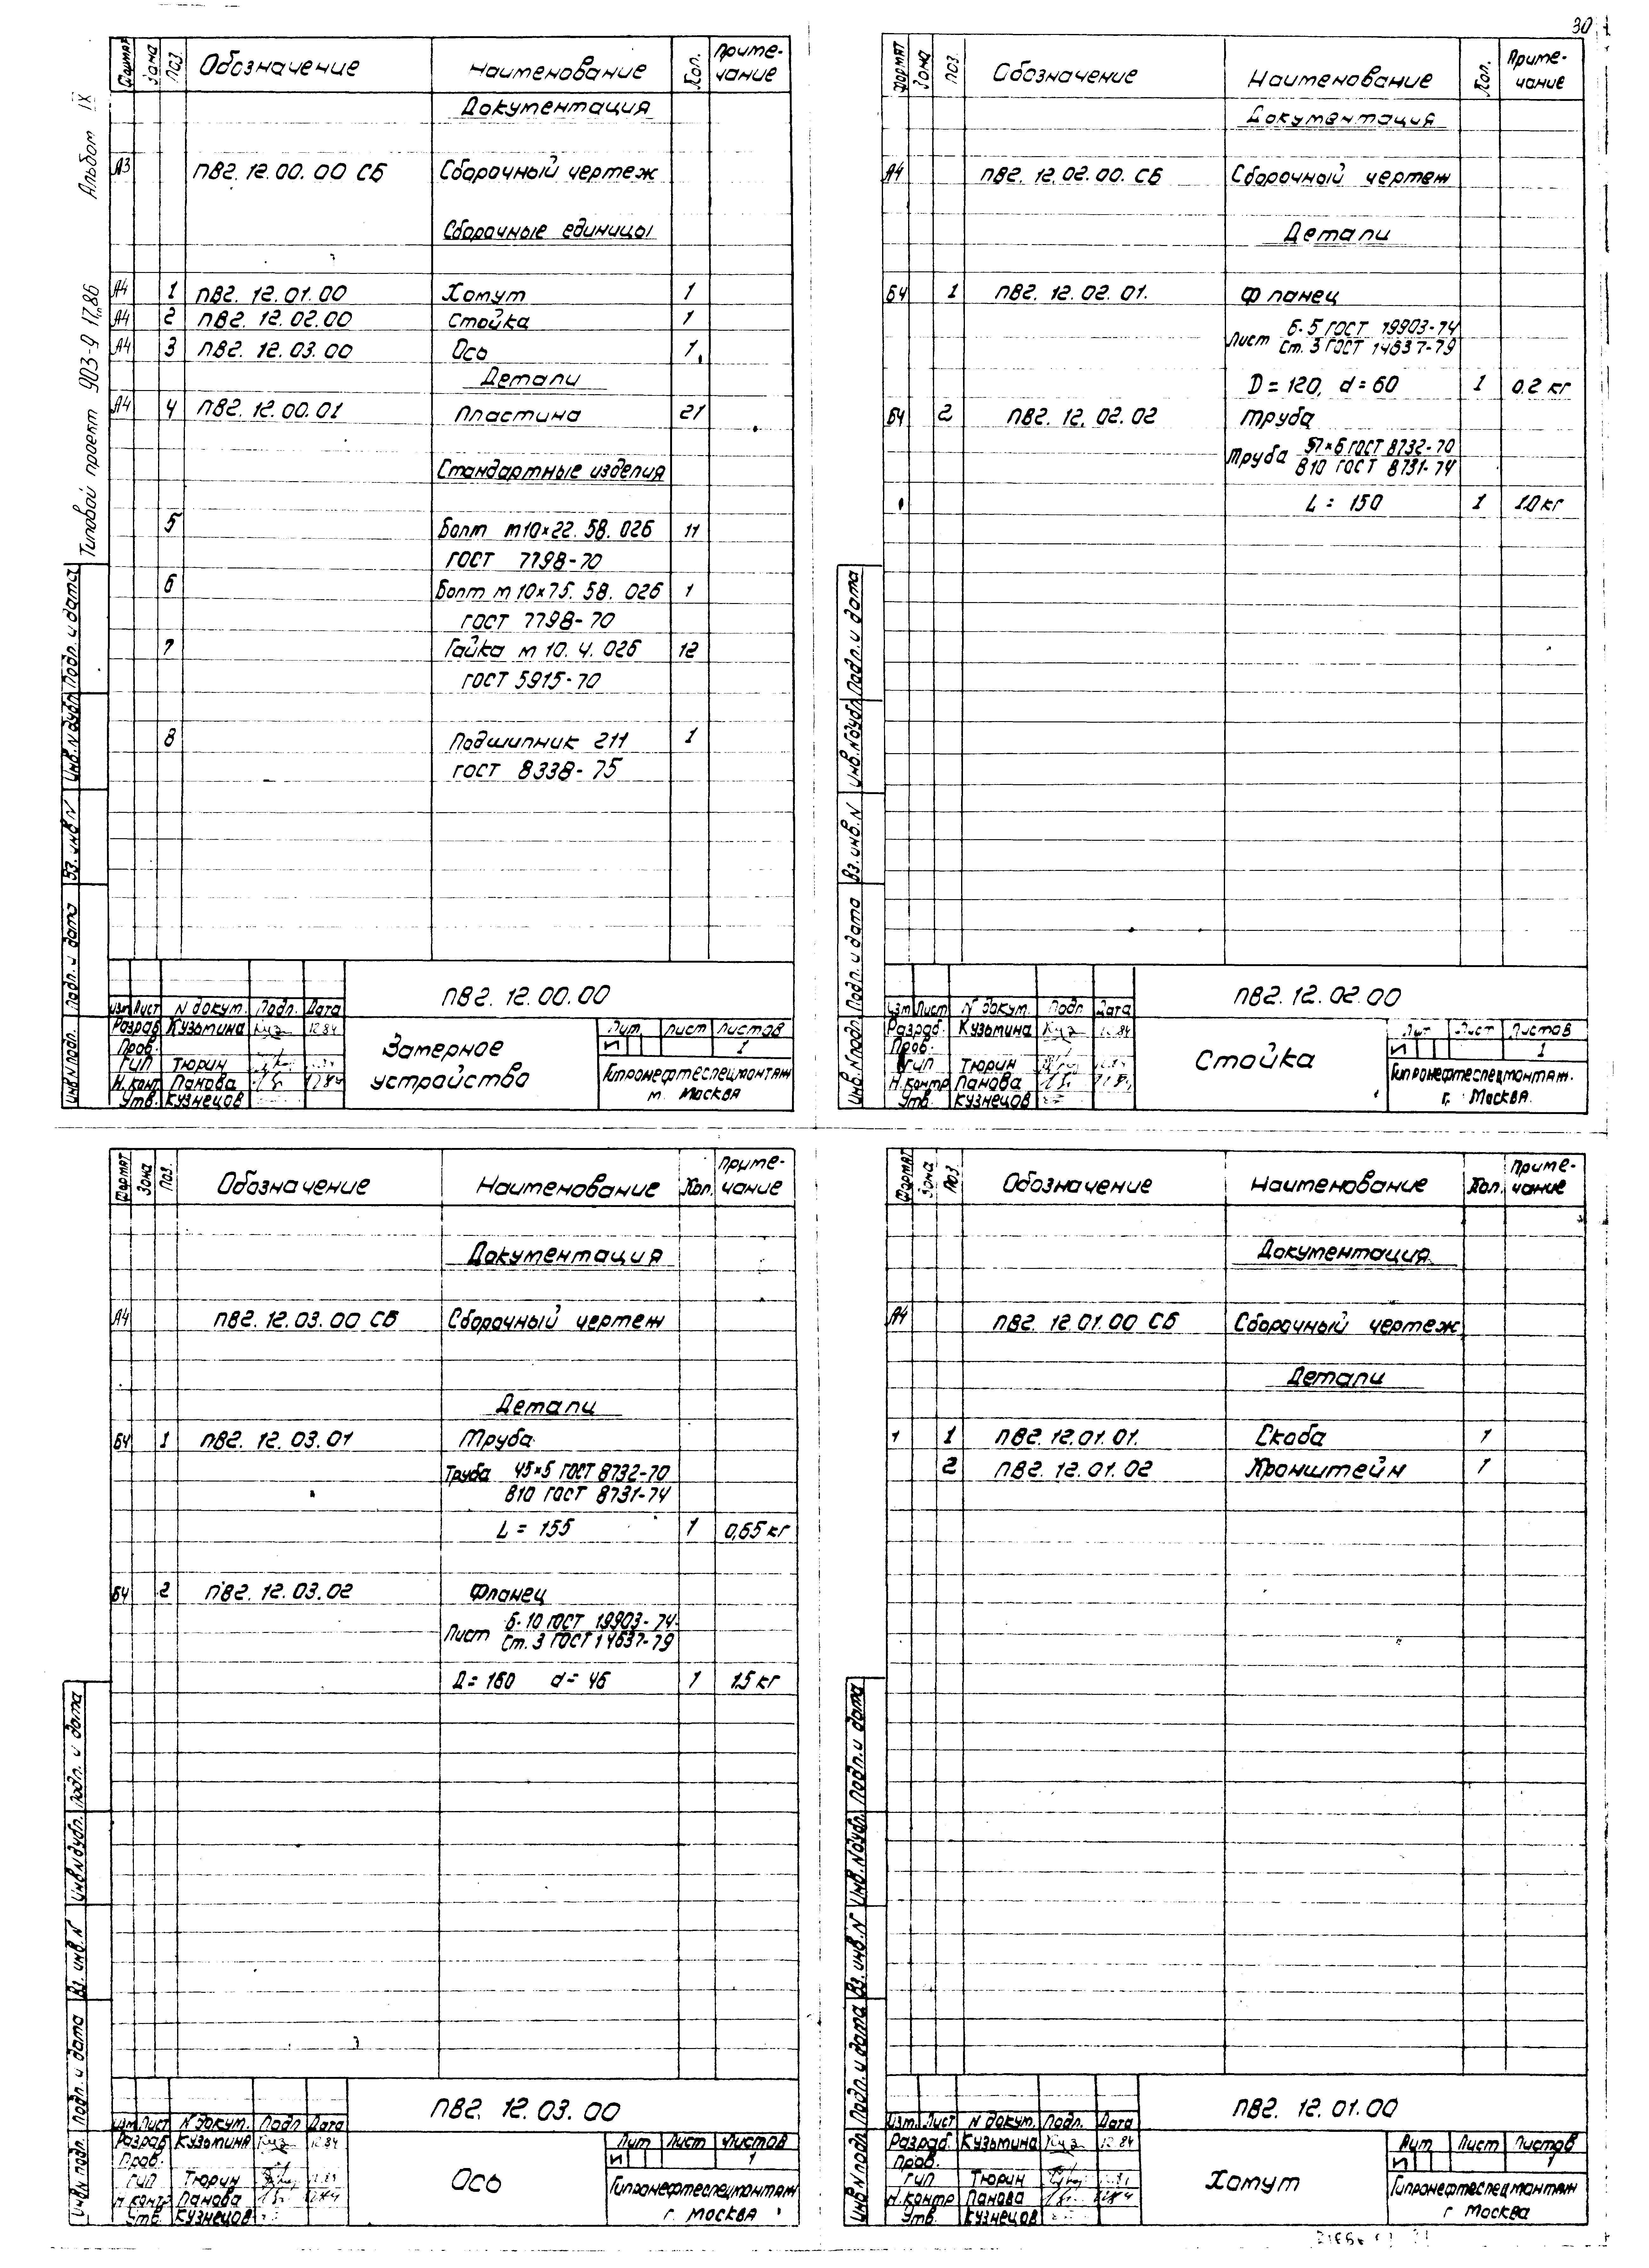 30
Альбом IX
Типовой проект 903-9 17.86
Формат Зона Поз. Обозначение Наименование Кол. Примечание
Документация
А3 ПВ2. 12. 00. 00 СБ Сборочный чертеж
Сборочные единицы
А4 1 ПВ2. 12. 01. 00 Хомут 1
А4 2 ПВ2. 12. 02. 00 Стойка 1
А4 3 ПВ2. 12. 03. 00 Ось 1
Детали
А4 4 ПВ2. 12. 00. 01 Пластина 21
Стандартные изделия
5 Болт м10×22. 58. 026 11
ГОСТ 7798-70
6 Болт м10×75. 58. 026 1
ГОСТ 7798-70
7 Гайка м 10. 4. 026 12
ГОСТ 5915-70
8 Подшипник 211 1
ГОСТ 8338-75
Инв.N подл. Подп. и дата Вз. инв N Инв. N дубл. Подп. и дата
ПВ2. 12. 00. 00
Изм Лист N докум. Подп. Дата
Разраб Кузьмина 12.84
Пров.
ГИП Тюрин
Н. конт. Панова
Утв. Кузнецов
Замерное
устройство
Лит. Лист Листов
И 1
Гипронефтеспецмонтаж
г. Москва
Формат Зона Поз. Обозначение Наименование Кол. Примечание
Документация
А4 ПВ2. 12. 02. 00. СБ Сборочный чертеж
Детали
БЧ 1 ПВ2. 12. 02. 01. Фланец
Лист Б-5 ГОСТ 19903-74
Ст. 3 ГОСТ 14637-79
D = 120, d = 60 1 0.2 кг
БЧ 2 ПВ2. 12. 02. 02 Труба
Труба 57×6 ГОСТ 8732-70
В10 ГОСТ 8731-74
L = 150 1 1.0 кг
Инв. N подл. Подп. и дата Вз. инв. N Инв. N дубл. Подп. и дата
ПВ2. 12. 02. 00
Изм Лист N докум. Подп Дата
Разраб. Кузьмина 12.84
Пров.
ГИП Тюрин
Н. контр Панова
Утв. Кузнецов
Стойка
Лит Лист Листов
И 1
Гипронефтеспецмонтаж.
г. Москва.
Формат Зона Поз. Обозначение Наименование Кол. Примечание
Документация
А4 ПВ2. 12. 03. 00 СБ Сборочный чертеж
Детали
БЧ 1 ПВ2. 12. 03. 01 Труба
Труба 45×5 ГОСТ 8732-70
В10 ГОСТ 8731-74
L = 155 1 0,65 кг
БЧ 2 ПВ2. 12. 03. 02 Фланец
Лист Б-10 ГОСТ 19903-74
Ст. 3 ГОСТ 14637-79
D = 160 d = 46 1 1.5 кг
Инв N подл. Подп. и дата Вз. инв. N Инв N дубл. Подп. и дата
ПВ2. 12. 03. 00
Изм Лист N докум. Подп Дата
Разраб Кузьмина 12.84
Пров.
ГИП Тюрин
Н. контр Панова
Утв. Кузнецов
Ось
Лит Лист Листов
И 1
Гипронефтеспецмонтаж
г. Москва
Формат Зона Поз Обозначение Наименование Кол. Примечание
Документация
А4 ПВ2. 12. 01. 00 СБ Сборочный чертеж
Детали
1 ПВ2. 12. 01. 01. Скоба 1
2 ПВ2. 12. 01. 02 Кронштейн 1
Инв N подл. Подп. и дата Вз. инв. N Инв. N дубл. Подп. и дата
ПВ2. 12. 01. 00
Изм. Лист N докум. Подп. Дата
Разраб. Кузьмина 12.84
Пров.
ГИП Тюрин
Н. контр Панова
Утв. Кузнецов
Хомут
Лит Лист Листов
И 1
Гипронефтеспецмонтаж
г Москва